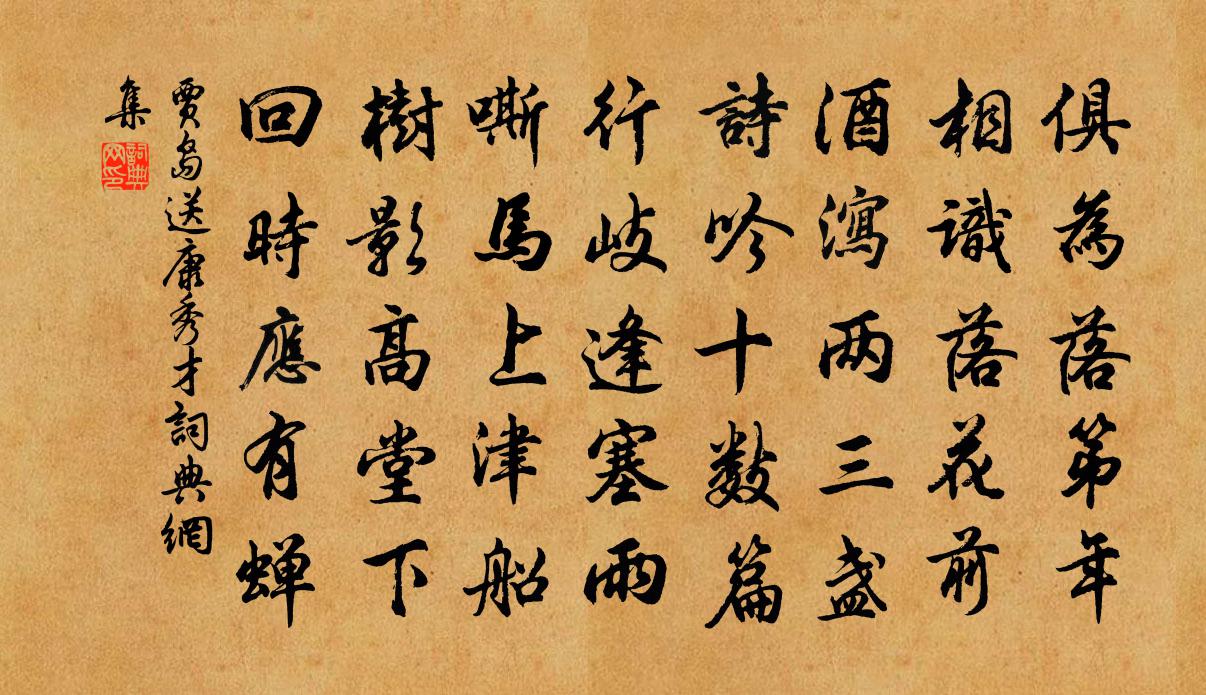 俱為落第年
相識落花前
酒瀉两三盏
詩吟十数篇
行岐逢塞雨
嘶馬上津船
樹影高堂下
回時應有蝉
賈島送康秀才詞典網
集
詞典
网印